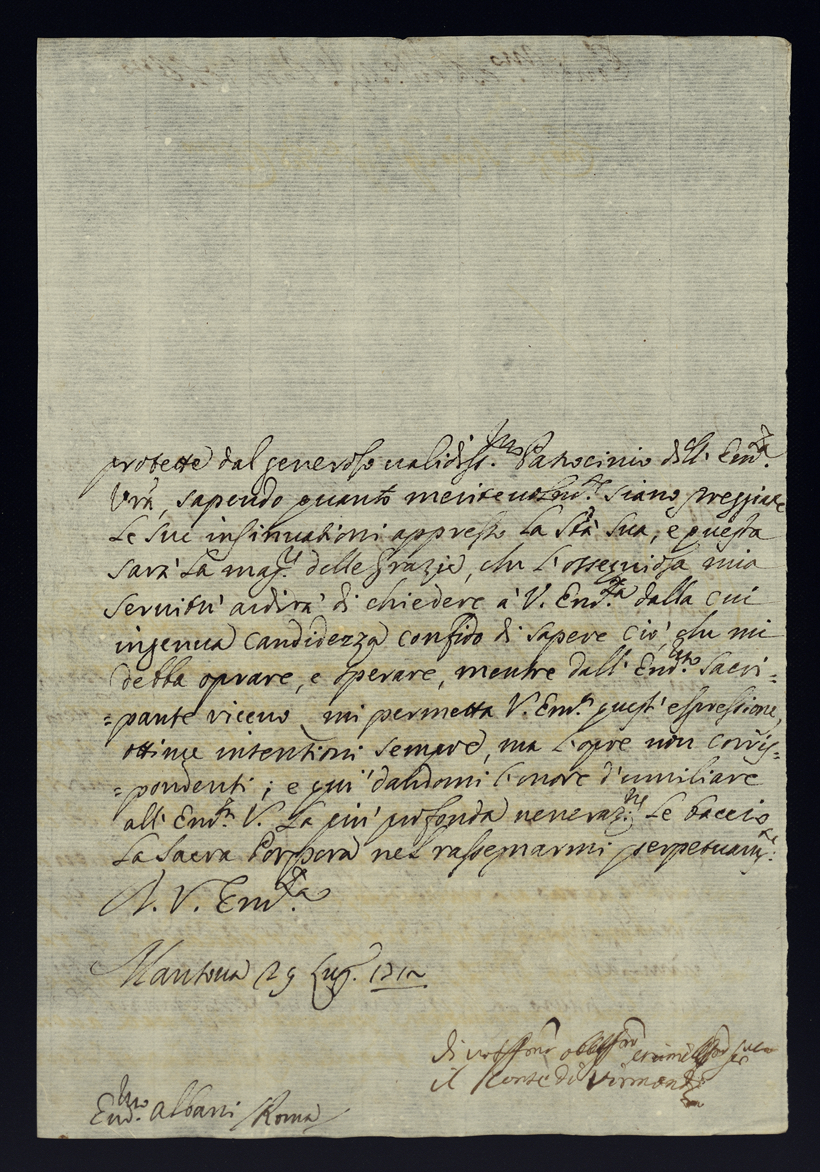 protette dal generoso validiss.mo Patrocinio dell' Em.za
Vrã, sapendo quanto meritevolm.te siano preggiate
le sue insinuationi appresso la Stà Sua, e questa
sarà la mag.r delle grazie, che l'ossequiosa mia
servitù ardirà di chiedere à V. Em.za dalla cui
ingenua candidezza confido di sapere ciò, che mi
debba oprare, e operare, mentre dall' Em.mo Sacri=
=pante ricevo, mi permetta V. Em.a questi espressione,
ottime intentioni sempre, ma l'opre non corris=
=pondenti; e qui dandomi l'onore d'umiliare
all' Em.za V. la più profonda veneraz.ne le baccio
la Sacra Porpora nel rassegnarmi perpetuam.te:
A. V. Em.za
Mantova 29 Lug.
il Conte di Virmond
Em.mo Albani Roma